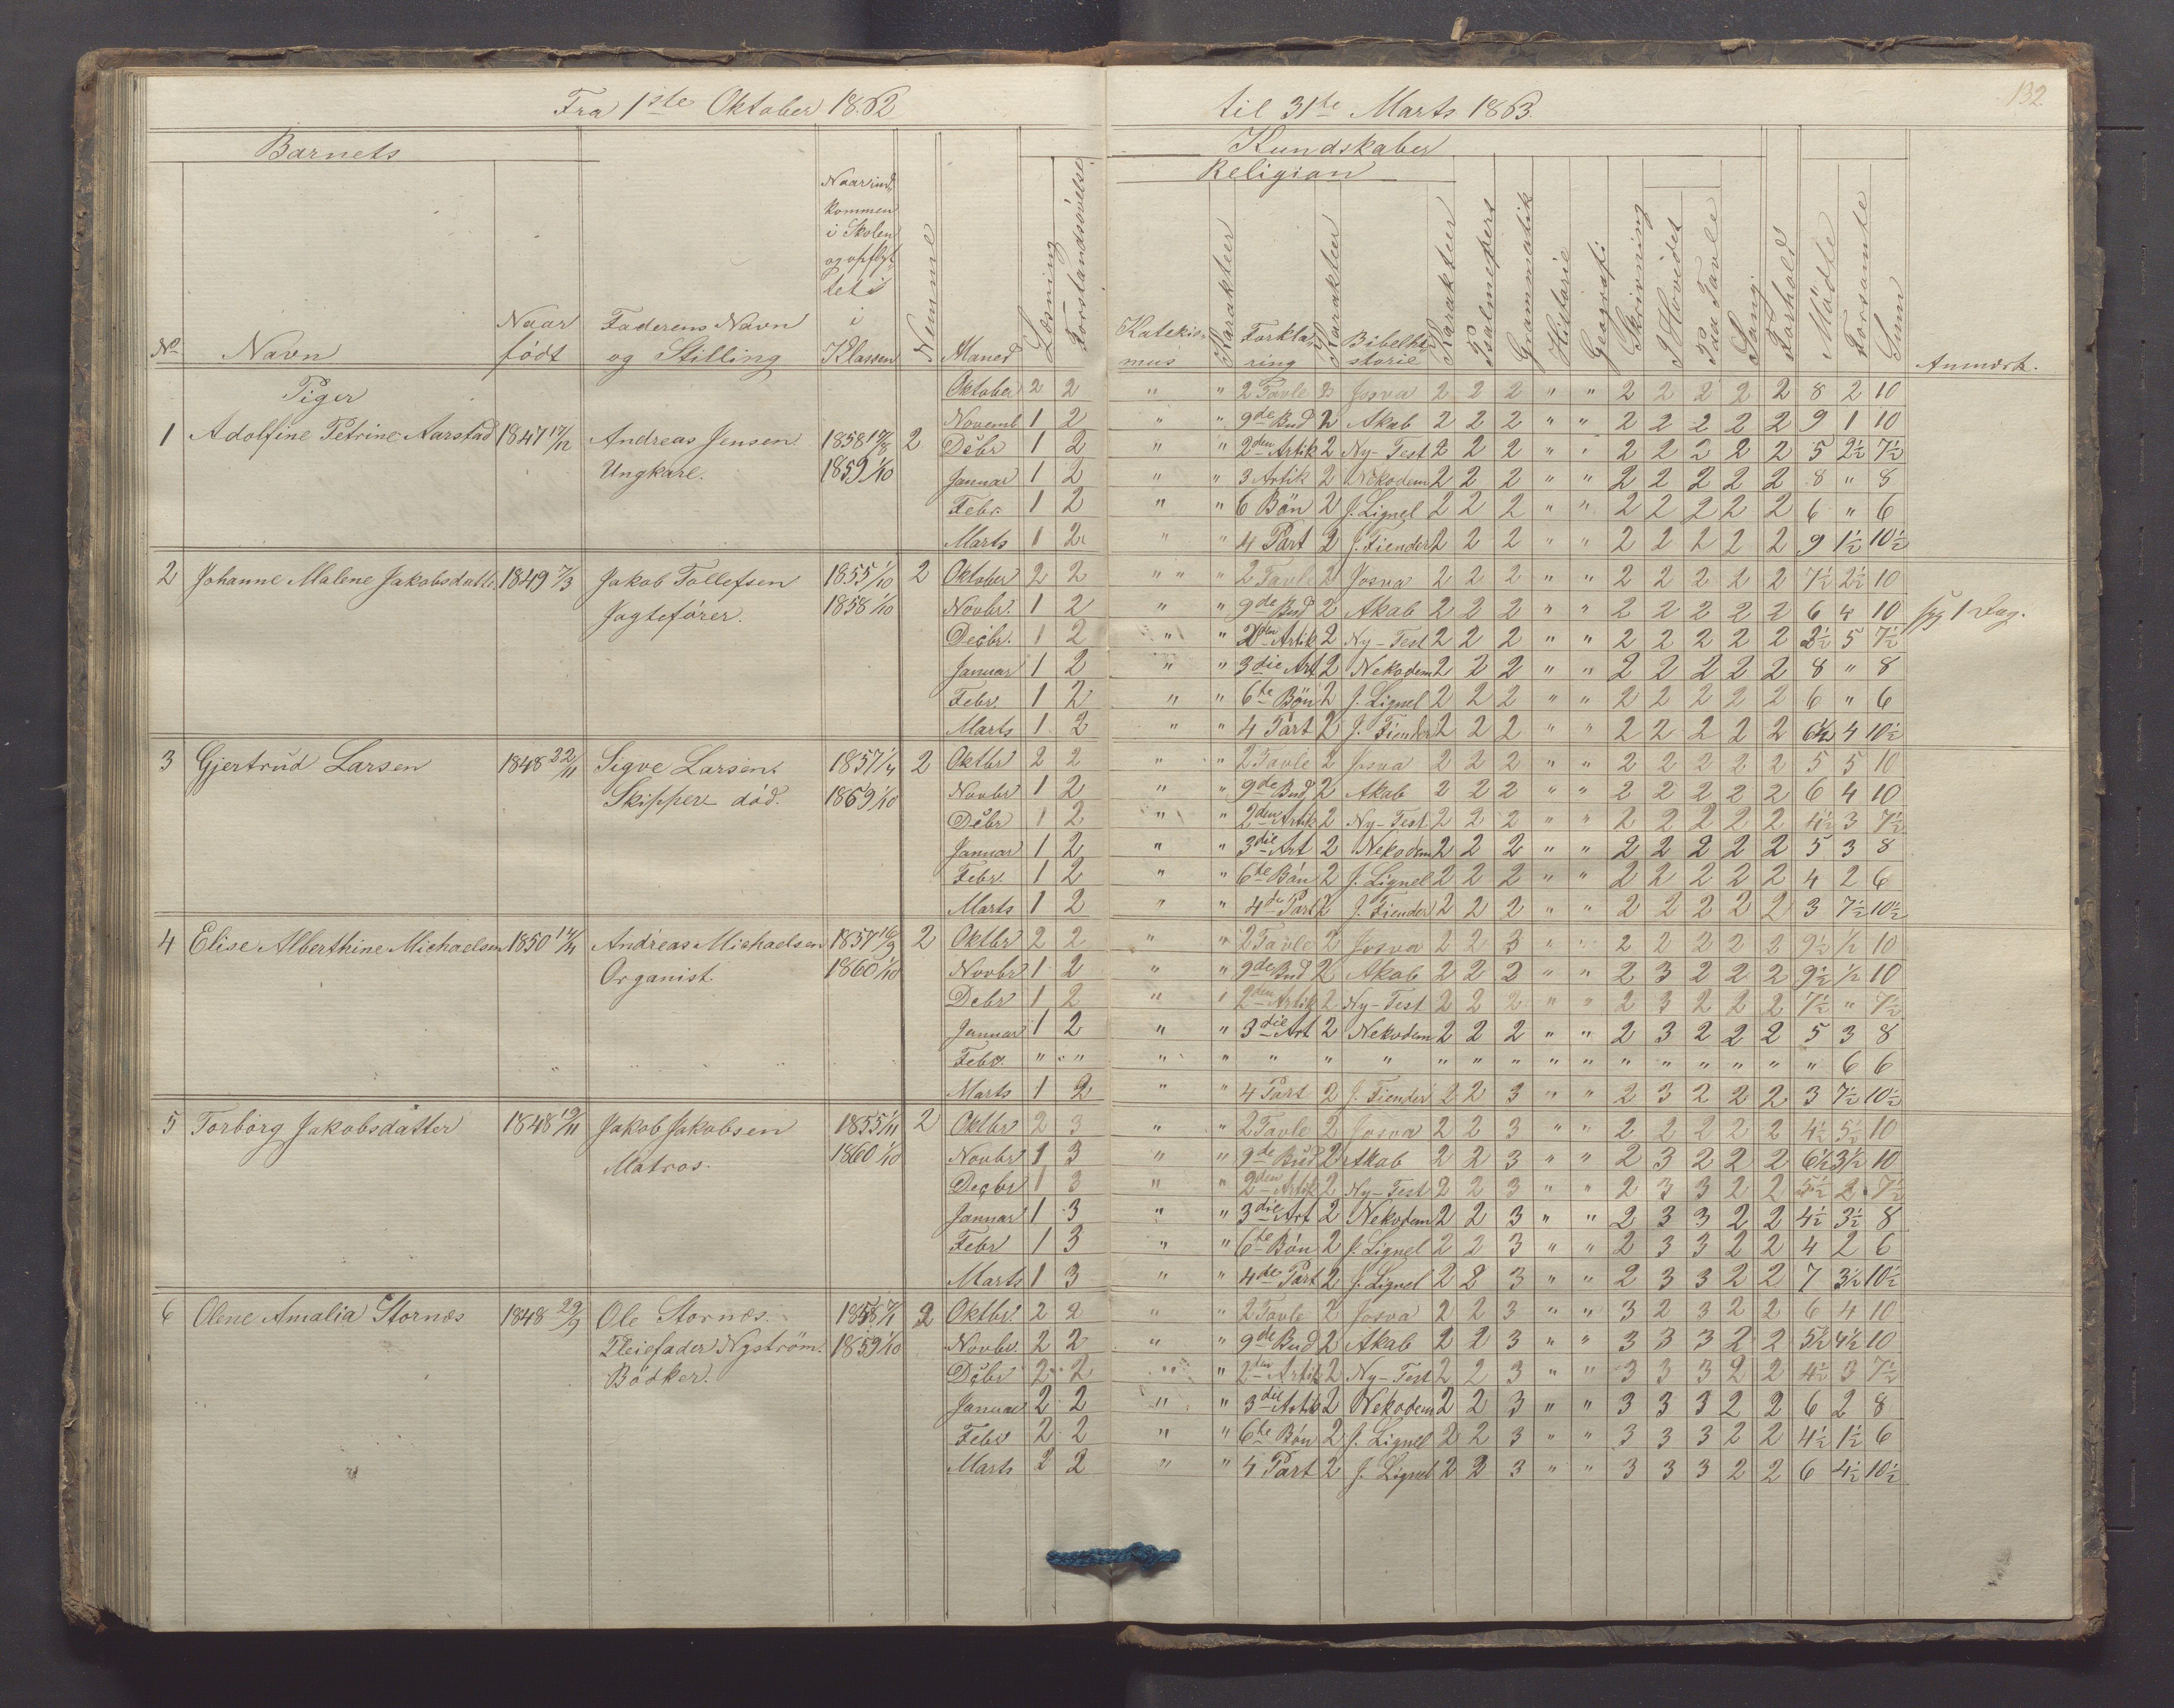 132
Fra 1ste Oktober 1862 til 31te Marts 1863
Barnets Kundskaber
Religion
No Navn Naar født Faderens Navn og Stilling Naar ind-kommen i Skolen og opflyt-tet i i Klassen Numme Maned Læsning Forstandsøvelse Katekis-mus Karakter Forkla-ring Karakter Bibelhi-storie Karakter Psalmevers Grammatik Historie Geografi Skrivning I Hovedet Paa Tavle Sang Forhold Mødte Forsømte Sum Anmærk.
Piger
Oktober 2 2 " " 2 Tavle 2 Josva 2 2 2 " " 2 2 2 2 2 8 2 10
Novemb 1 2 " " 9de Bud 2 Akab 2 2 2 " " 2 2 2 2 2 9 1 10
1 Adolfine Petrine Aarstad 1847 17/12 Andreas Jensen 1858 19/8 2 Debr 1 2 " " 2den Artik 2 Ny-Test 2 2 2 " " 2 2 2 2 2 5 2½ 7½
Ungkarl. 1859 1/10 Januar 1 2 " " 3 Artik 2 Nekodem 2 2 2 " " 2 2 2 2 2 8 " 8
Febr. 1 2 " " 6 Bøn 2 J. Lignel 2 2 2 " " 2 2 2 2 2 6 " 6
Marts 1 2 " " 4 Part 2 J. Fiender 2 2 2 " " 2 2 2 2 2 9 1½ 10½
2 Johanne Malene Jakobsdatte 1849 7/3 Jakob Tollefsen 1855 1/10 2 Oktober 2 2 " " 2 Tavle 2 Josva 2 2 2 " " 2 2 2 2 2 7½ 2½ 10
Jagtefører. 1858 1/10 Novbr. 1 2 " " 9de Bud 2 Akab 2 2 2 " " 2 2 2 2 2 6 4 10 syg 1 Dag.
Decbr. 1 2 " " 2den Artik 2 Ny-Test 2 2 2 " " 2 2 2 2 2 2½ 5 7½
Januar 1 2 " " 3die Art 2 Nekodem 2 2 2 " " 2 2 2 2 2 8 " 8
Febr. 1 2 " " 6te Bøn 2 J. Lignel 2 2 2 " " 2 2 2 2 2 6 " 6
Marts 1 2 " " 4 Part 2 J. Fiender 2 2 2 " " 2 2 2 2 2 6½ 4 10½
3 Gjertrud Larsen 1848 22/11 Sigve Larsen 1857 1/4 2 Oktbr 2 2 " " 2 Tavle 2 Josva 2 2 2 " " 2 2 2 2 2 5 5 10
Skipper død. 1859 1/10 Novbr 1 2 " " 9de Bud 2 Akab 2 2 2 " " 2 2 2 2 2 6 4 10
Debr 1 2 " " 2den Artik 2 Ny-Test 2 2 2 " " 2 2 2 2 2 4½ 3 7½
Januar 1 2 " " 3die Art 2 Nekodem 2 2 2 " " 2 2 2 2 2 5 3 8
Febr. 1 2 " " 6te Bøn 2 J. Lignel 2 2 2 " " 2 2 2 2 2 4 2 6
Marts 1 2 " " 4de Part 2 J. Fiender 2 2 2 " " 2 2 2 2 2 3 7½ 10½
4 Elise Alberthine Michaelsen 1850 14/11 Andreas Michaelsen 1857 16/9 2 Oktbr 2 2 " " 2 Tavle 2 Josva 2 2 3 " " 2 2 2 2 2 9½ ½ 10
Organist. 1860 1/10 Novbr 1 2 " " 9de Bud 2 Akab 2 2 2 " " 2 3 2 2 2 9½ ½ 10
Debr 1 2 " " 2den Artik 2 Ny-Test 2 2 2 " " 2 3 2 2 2 7½ " 7½
Januar 1 2 " " 3die Art 2 Nekodem 2 2 2 " " 2 3 2 2 2 5 3 8
Febr. " " " " " " " " " " " " " " " " " " 6 6
Marts 1 2 " " 4 Part 2 J. Fiender 2 2 3 " " 2 3 2 2 2 3 7½ 10½
5 Torborg Jakobsdatter 1848 19/11 Jakob Jakobsen 1855 1/11 2 Oktbr 2 3 " " 2 Tavle 2 Josva 2 2 3 " " 2 2 2 2 2 4½ 5½ 10
Matros. 1860 1/10 Novbr 1 3 " " 9de Bud 2 Akab 2 2 3 " " 2 3 2 2 2 6½ 3½ 10
Decbr 1 3 " " 2den Artik 2 Ny-Test 2 2 3 " " 2 3 3 2 2 5½ 2 7½
Januar 1 3 " " 3die Art 2 Nekodem 2 2 3 " " 2 3 3 2 2 4½ 3½ 8
Febr 1 3 " " 6te Bøn 2 J. Lignel 2 2 3 " " 2 3 3 2 2 4 2 6
Marts 1 3 " " 4de Part 2 J. Lignel 2 2 3 " " 2 3 3 2 2 7 3½ 10½
6 Olene Amalia Stornæs 1848 29/9 Ole Stornæs. 2 Oktbr. 2 2 " " 2 Tavle 2 Josva 2 2 3 " " 3 2 3 2 2 6 4 10
Pleiefader Nystrøm. 1859 1/10 Novbr. 2 2 " " 9de Bud 2 Akab 2 2 3 " " 3 3 3 2 2 5½ 4½ 10
Bødker. Debr 2 2 " " 2den Artik 2 Ny-Test 2 2 3 " " 3 3 3 2 2 4½ 3 7½
Januar 2 2 " " 3die Artik 2 Nekodem 2 2 3 " " 3 3 3 2 2 6 2 8
Febr 2 2 " " 6te Bøn 2 J. Lignel 2 2 3 " " 3 3 3 2 2 4½ 1½ 6
Marts 2 2 " " 4 Part 2 J. Lignel 2 2 3 " " 3 3 3 2 2 6 4½ 10½